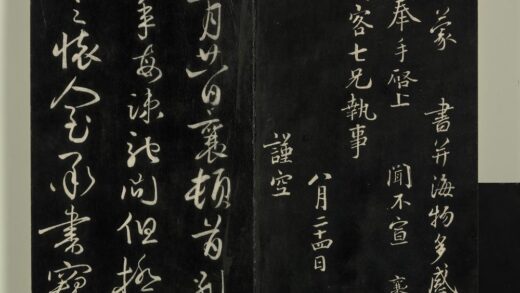 蒙 書并海物多感
奉手啓上 聞不宣 襄
容七兄執事
八月二十四日
謹空
月廿日襄頓首别
每疎問但極
之懷承書竊